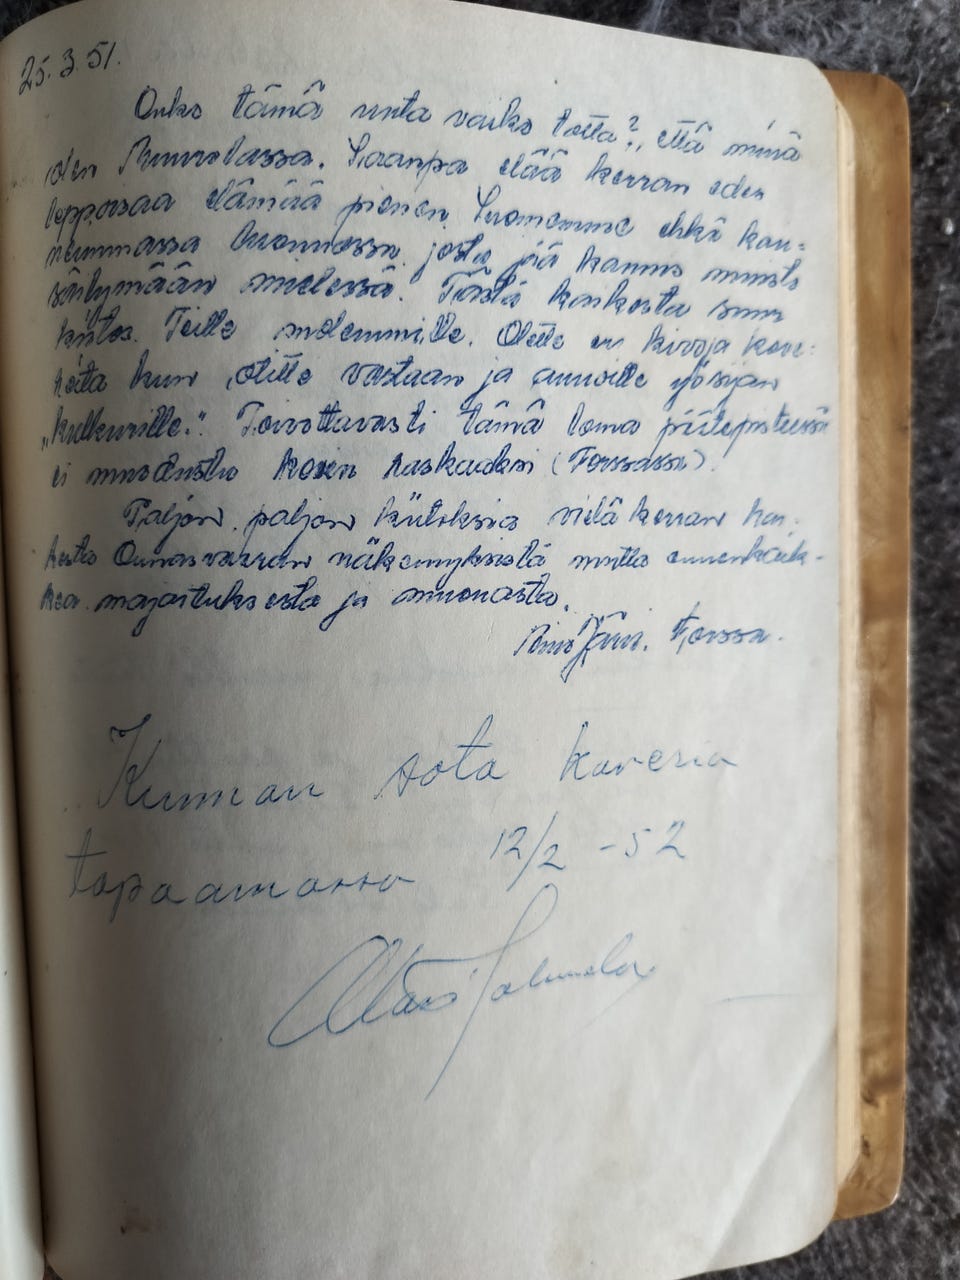 25.3.51.
Onko tämä unta vaiko totta?, että minä
olen Muurolassa. Saanpa elää kerran edes
leppoisaa elämää pienen Suomemme ehkä kau-
neimmassa luonnossa, josta jää kaunis muisto
säilymään mielessä. Tästä kaikesta suuri
kiitos Teille molemmille. Olette
kun otitte vastaan ja annoitte yösijan
"kulkurille." Toivottavasti tämä loma päätepisteessä
ei muodostu kovin raskaaksi (Forssassa).
Paljon, paljon kiitoksia vielä kerran kai-
kesta Ounasvaaran näkemyksistä mutta ennenkaik-
kea majoituksesta ja muonasta.
Forssa.
Kunnan sota kaveria
tapaamassa 12/2 -52